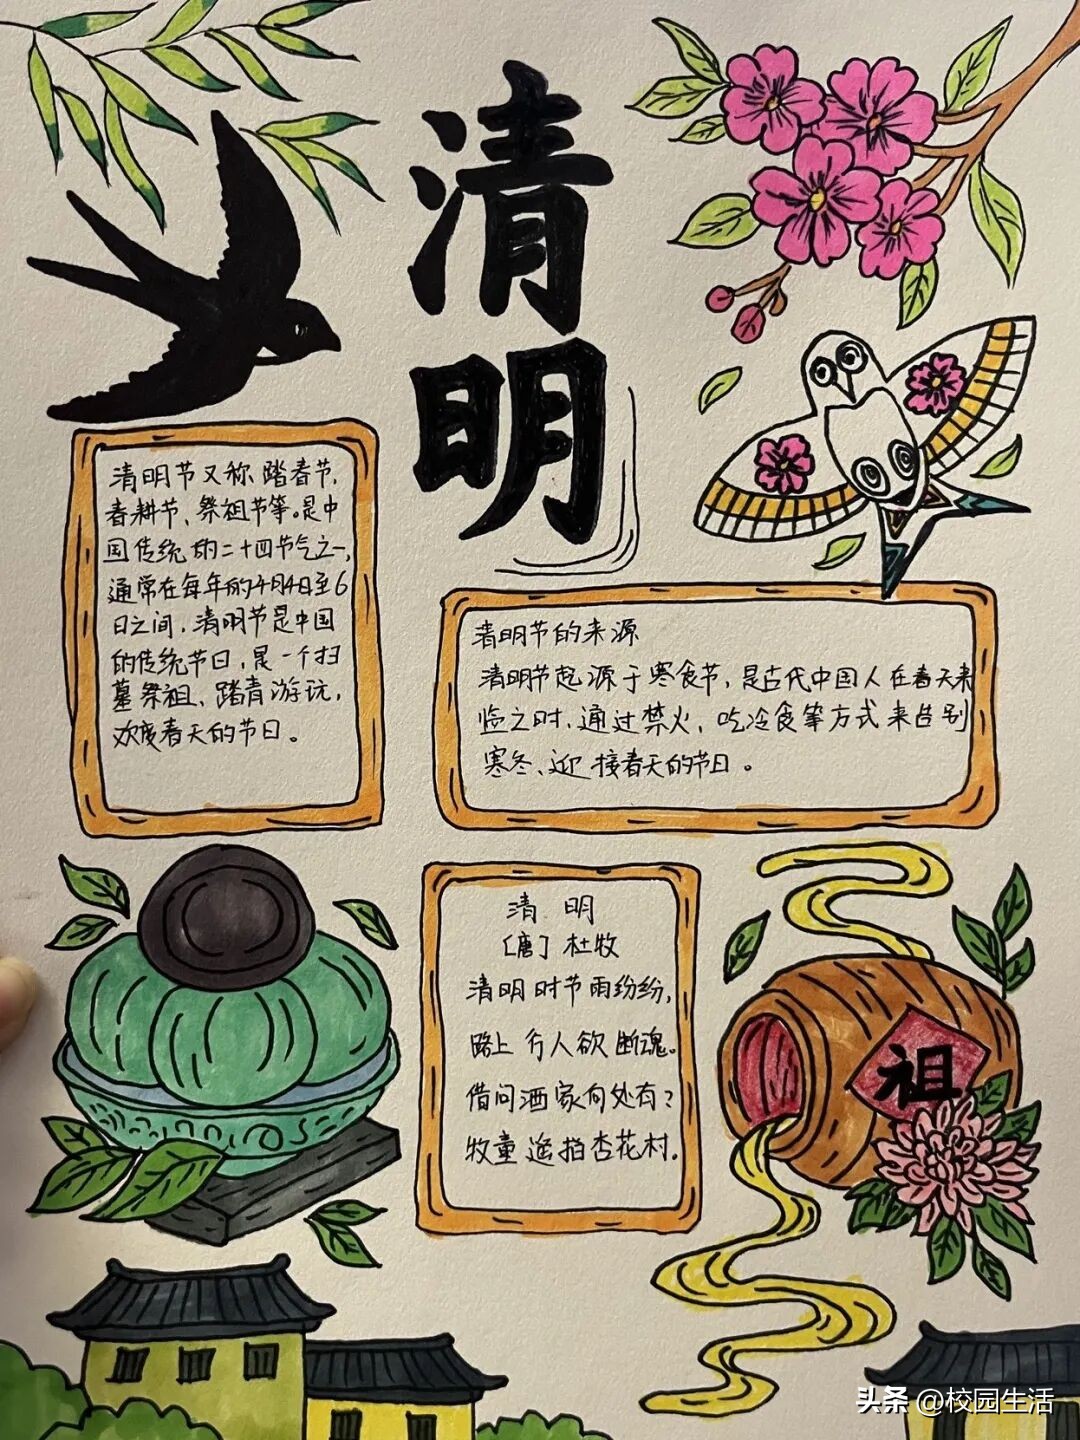 清明
清明节又称踏春节,
春耕节、祭祖节等。是中
国传统的二十四节气之一,
通常在每年的4月4日至6
日之间,清明节是中国
的传统节日,是一个扫
墓祭祖、踏青游玩,
欢度春天的节日。
清明节的来源
清明节起源于寒食节,是古代中国人在春天来
临之时,通过禁火,吃冷食等方式来告别
寒冬、迎接春天的节日。
清 明
[唐] 杜牧
清明时节雨纷纷,
路上行人欲断魂。
借问酒家何处有?
牧童遥指杏花村.
祖
头条 @校园生活